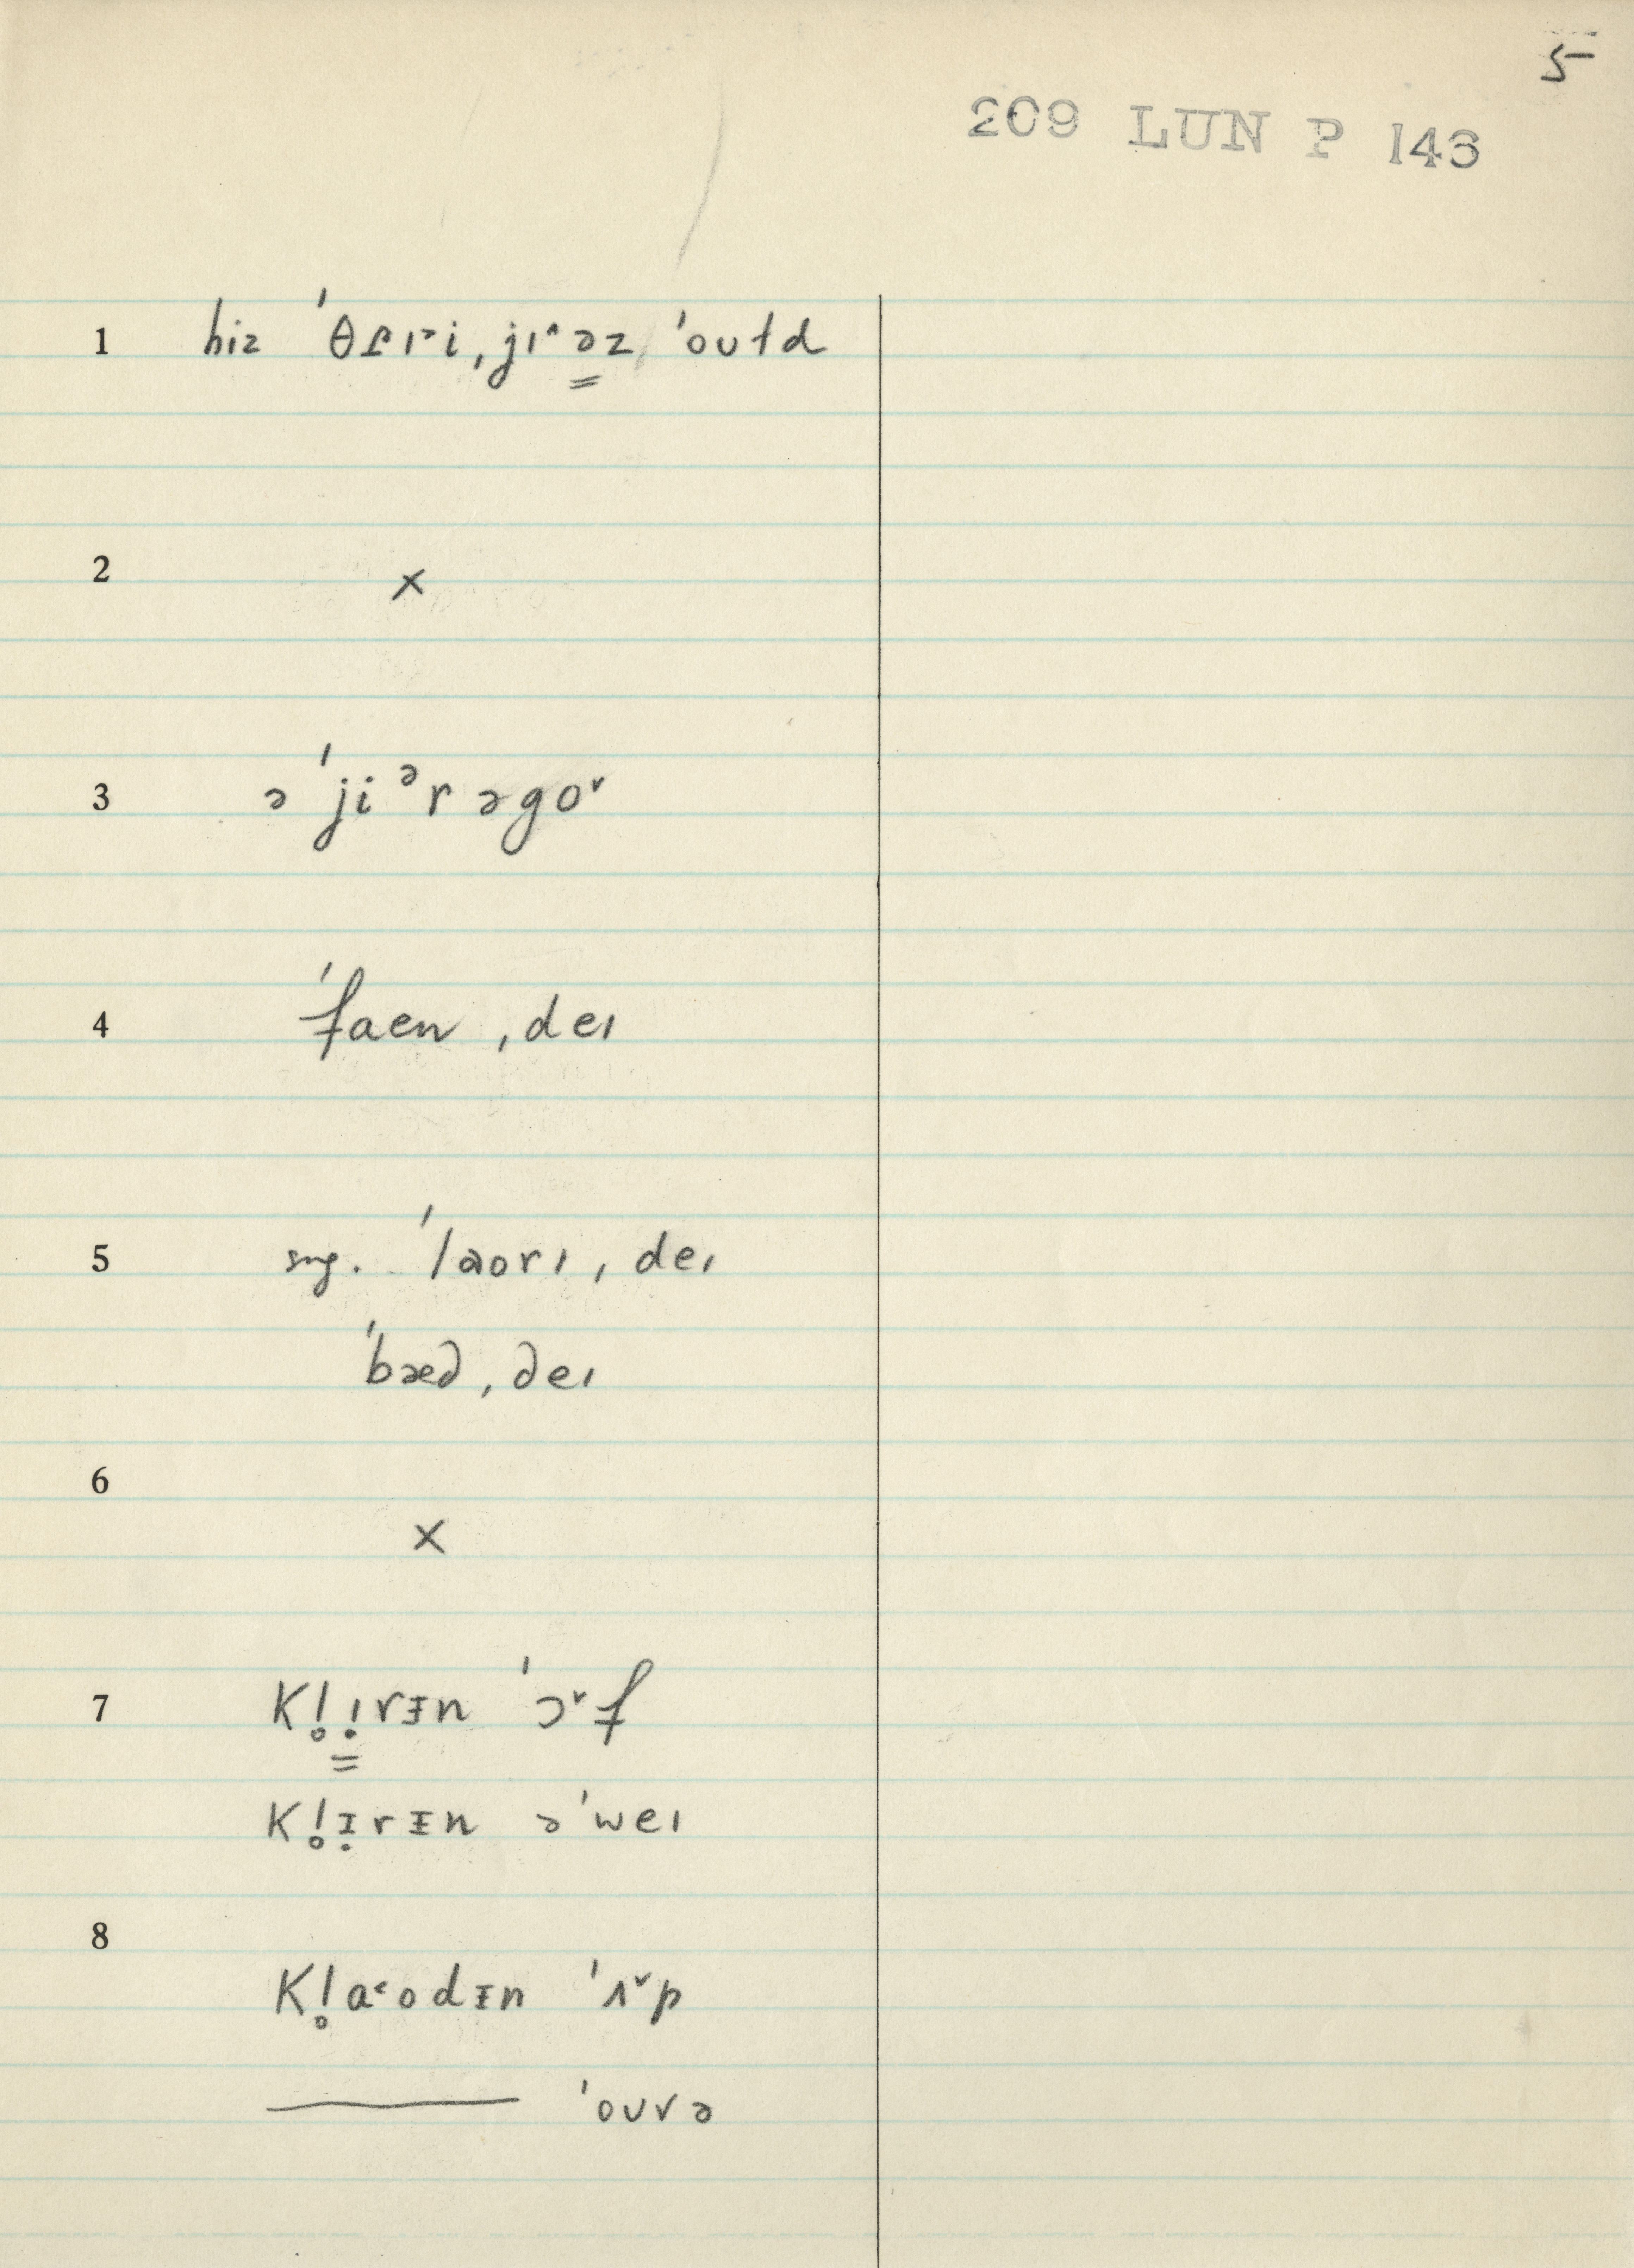 5
209 LUN P 143
1 hiz ˈθɜrˑi ˌjɪ^əz ˈoutd
2 ×
3 ə ˈjiᵊr əgo˅
4 ˈfaen ˌdeɪ
5 sug. ˈlaorɪ ˌdeɪ
ˈbæd ˌdeɪ
6
×
7 Kl̥ɪ̣rᵻn ˈɔ˅f
Kl̥ɪ̣rᵻn əˈweɪ
8
Kl̥a˂odᵻn ˈʌ˅p
——— ˈouvə